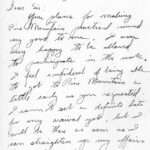 Dear Sir:
Your plans for making
Pine Mountain practical sound
very good to me. I am
very happy to be allowed
to participate in the work.
I feel confident of being able
to get to Pine Mountain
early as you requested
I cannot set a definite date
for my arrival yet, but I
will be there as soon as I
can straighten up my affairs